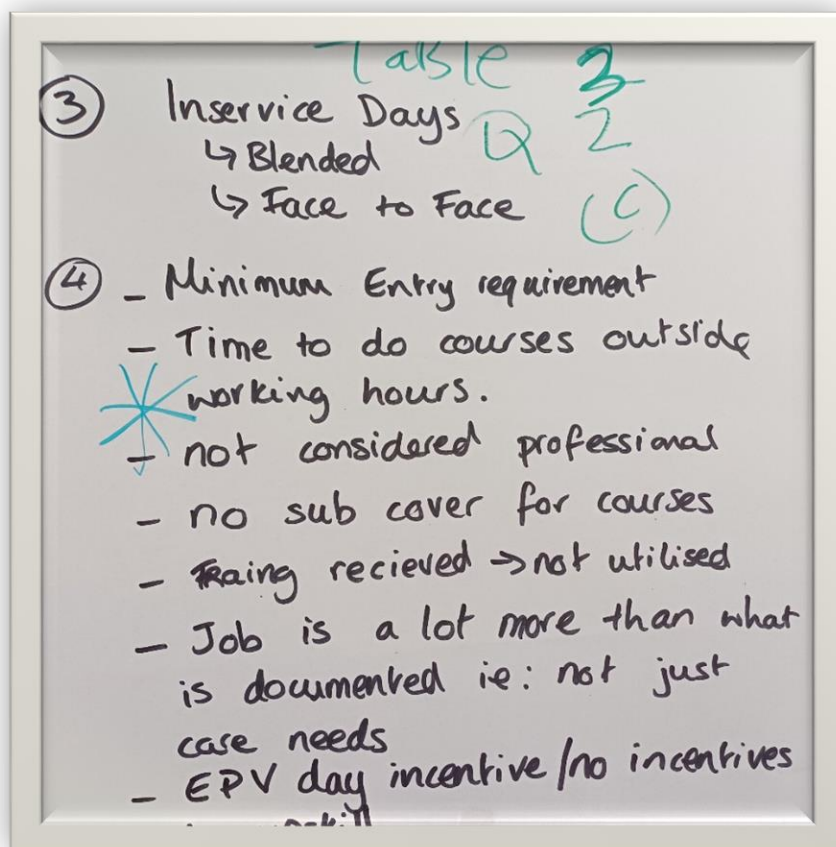 Table 3
③ Inservice Days Q 2
↳ Blended
↳ Face to Face (c)
④ - Minimum Entry requirement
- Time to do courses outside
working hours.
- not considered professional
- no sub cover for courses
- TRaing recieved → not utilised
- Job is a lot more than what
is documented ie: not just
case needs
- EPV day incentive/no incentives